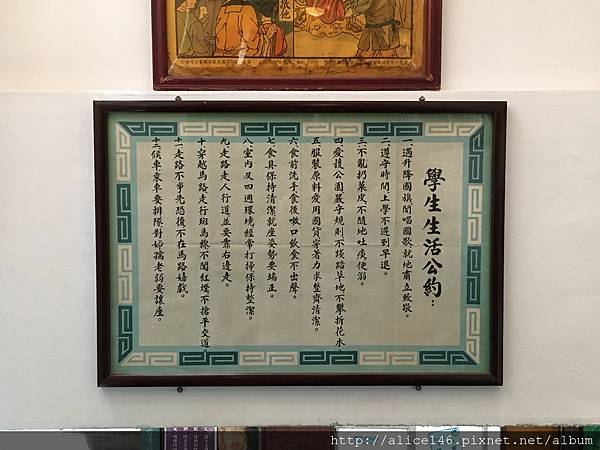 學生生活公約：
一、遇升降國旗聞唱國歌就地肅立致敬。
二、遵守時間上學不遲到早退。
三、不亂扔菓皮不隨地吐痰便溺。
四、愛護公園嚴守規則不踐踏草地不攀折花木、
五、服裝原料愛用國貨穿著力求整齊清潔。
六、食前洗手食後嗽口飲食不出聲。
七、食具保持清潔就座姿勢要端正。
八、室內及四週環境經常打掃保持整潔。
九、走路走人行道並要靠右邊走。
十、穿越馬路走行斑馬線不闖紅燈不搶平交道、
十一、走路不爭先恐後不在馬路嬉戲。
十二、候車乘車要排隊對婦孺老弱要讓座。
http://alice146.pixnet.net/album